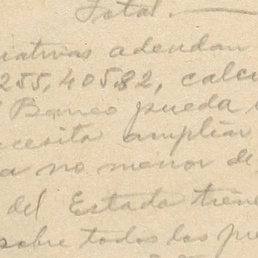 Total.
uativas adeudan
255,405.82, calcu
Banco pueda
ecesita ampliar
a no menor de
del Estado tiene
sobre todos los pre